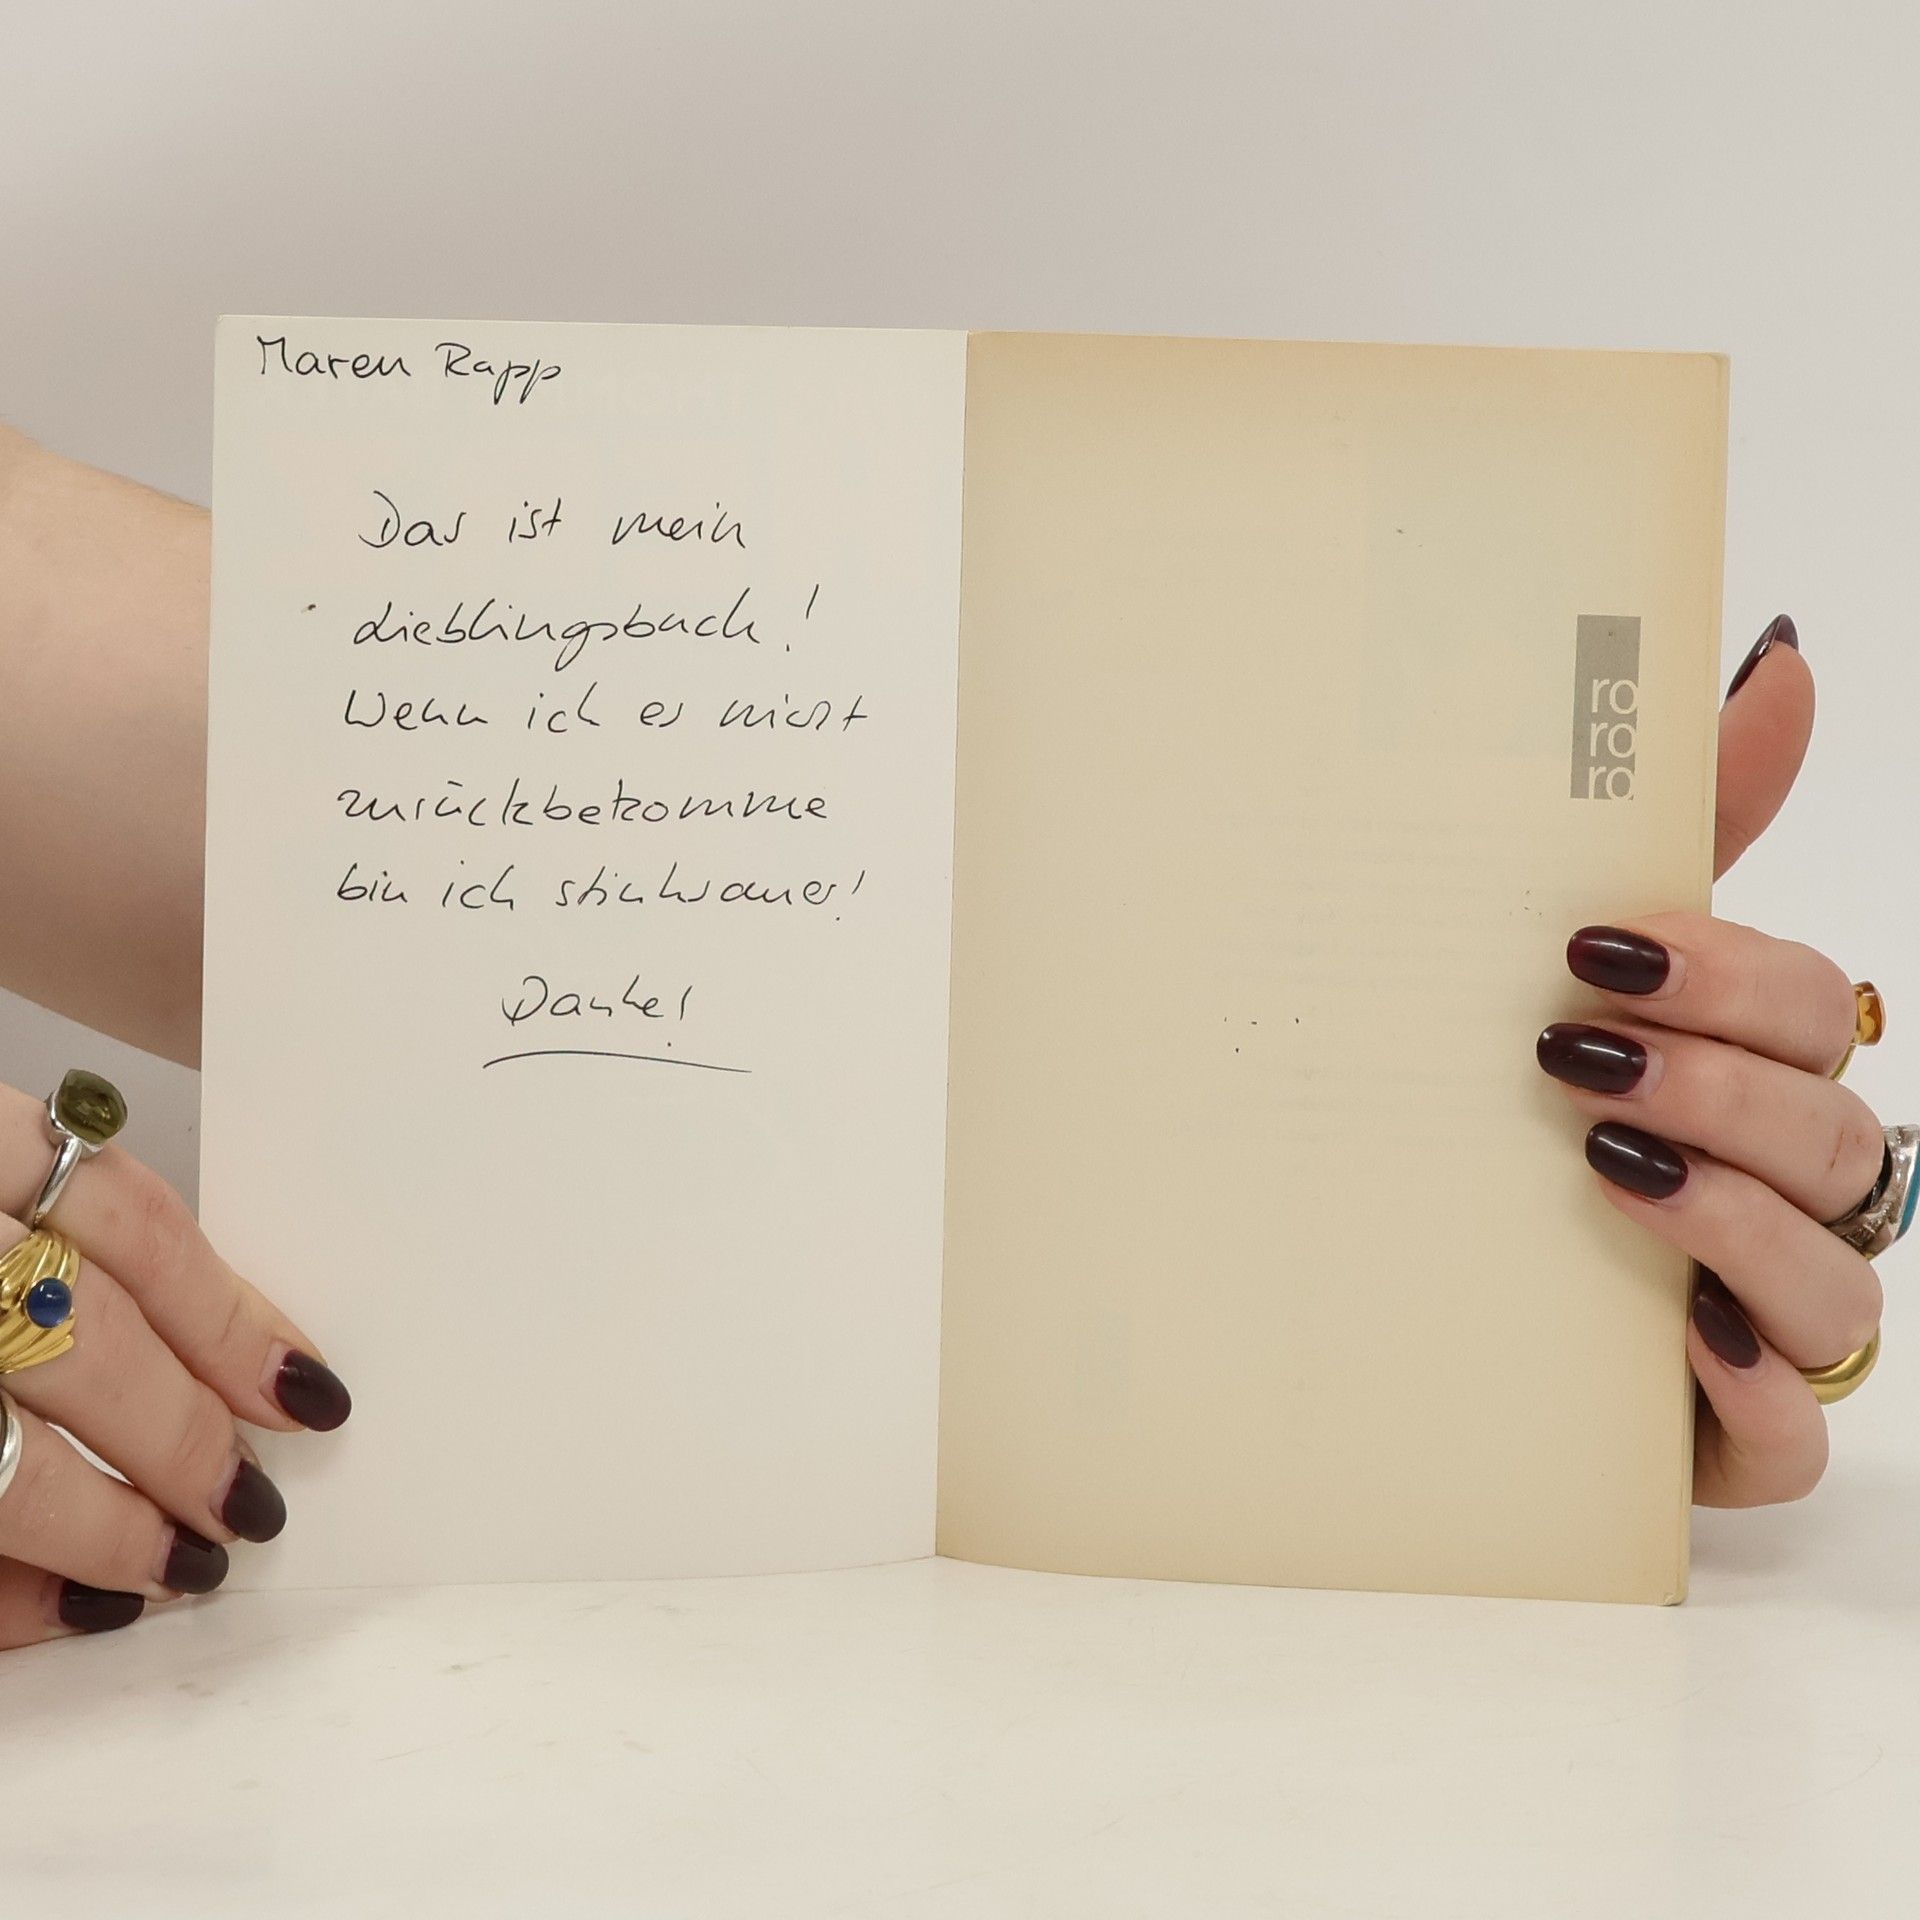 Maren Rapp
Das ist mein
Lieblingsbuch!
Wenn ich es nicht
zurückbekomme
bin ich stinksauer!
Danke!
ro
ro
ro